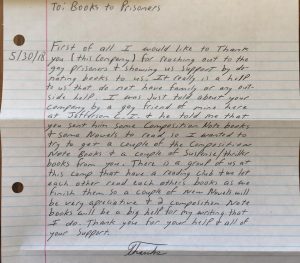 To: Books to Prisoners
5/30/18
First of all I would like to Thank
you (this Company) for reaching out to the
gay prisoners & showing us support by do-
nating books to us. It really is a help
to us that do not have family or any out-
side help. I was just told about your
company by a gay friend of mine here
at Jefferson C.I. & he told me that
you sent him some Composition Note books
& some Novels to read so I wanted to
try to get a couple of the Composition
Note Books & a couple of Suspense/thriller
books from you. There is a group of us at
this camp that have a reading club & we let
each other read each others books as we
finish them so a couple of new Novels will
be very apreciative & 2 composition Note
books will be a big help for my writing that
I do. Thank you for your help & all of
your support.
Thanks